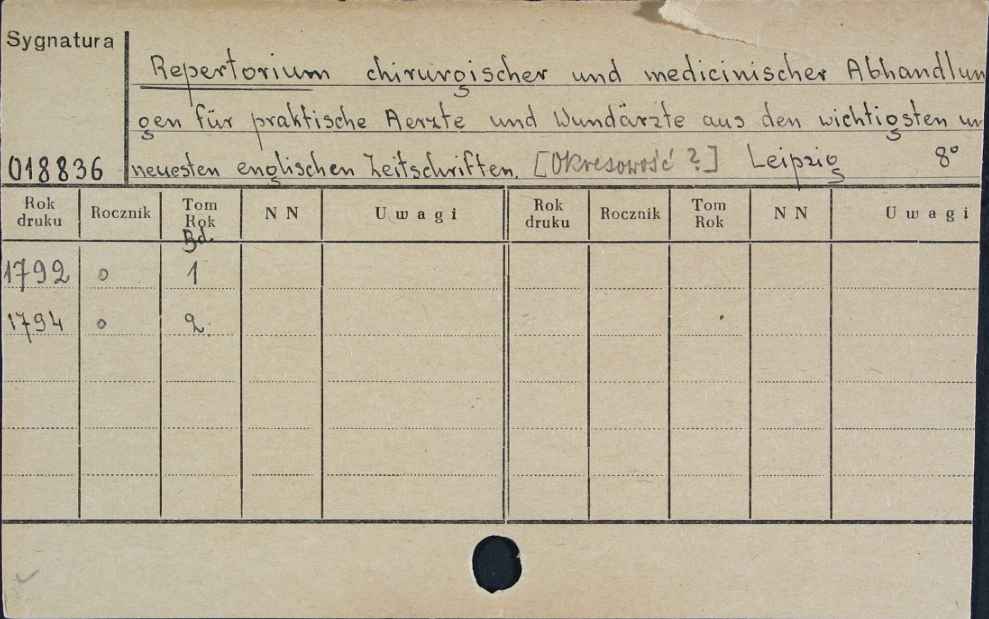 Sygnatura
Repertorium chirurgischer und medicinischer Abhandlun
gen für praktische Aerzte und Wundärzte aus den wichtigsten un
018836 neuesten englischen Zeitschriften. [Okresowość ?] Leipzig 8°
Rok druku Rocznik Tom Rok Bd. N N Uwagi Rok druku Rocznik Tom Rok N N Uwagi
1792 o 1
1794 o 2.